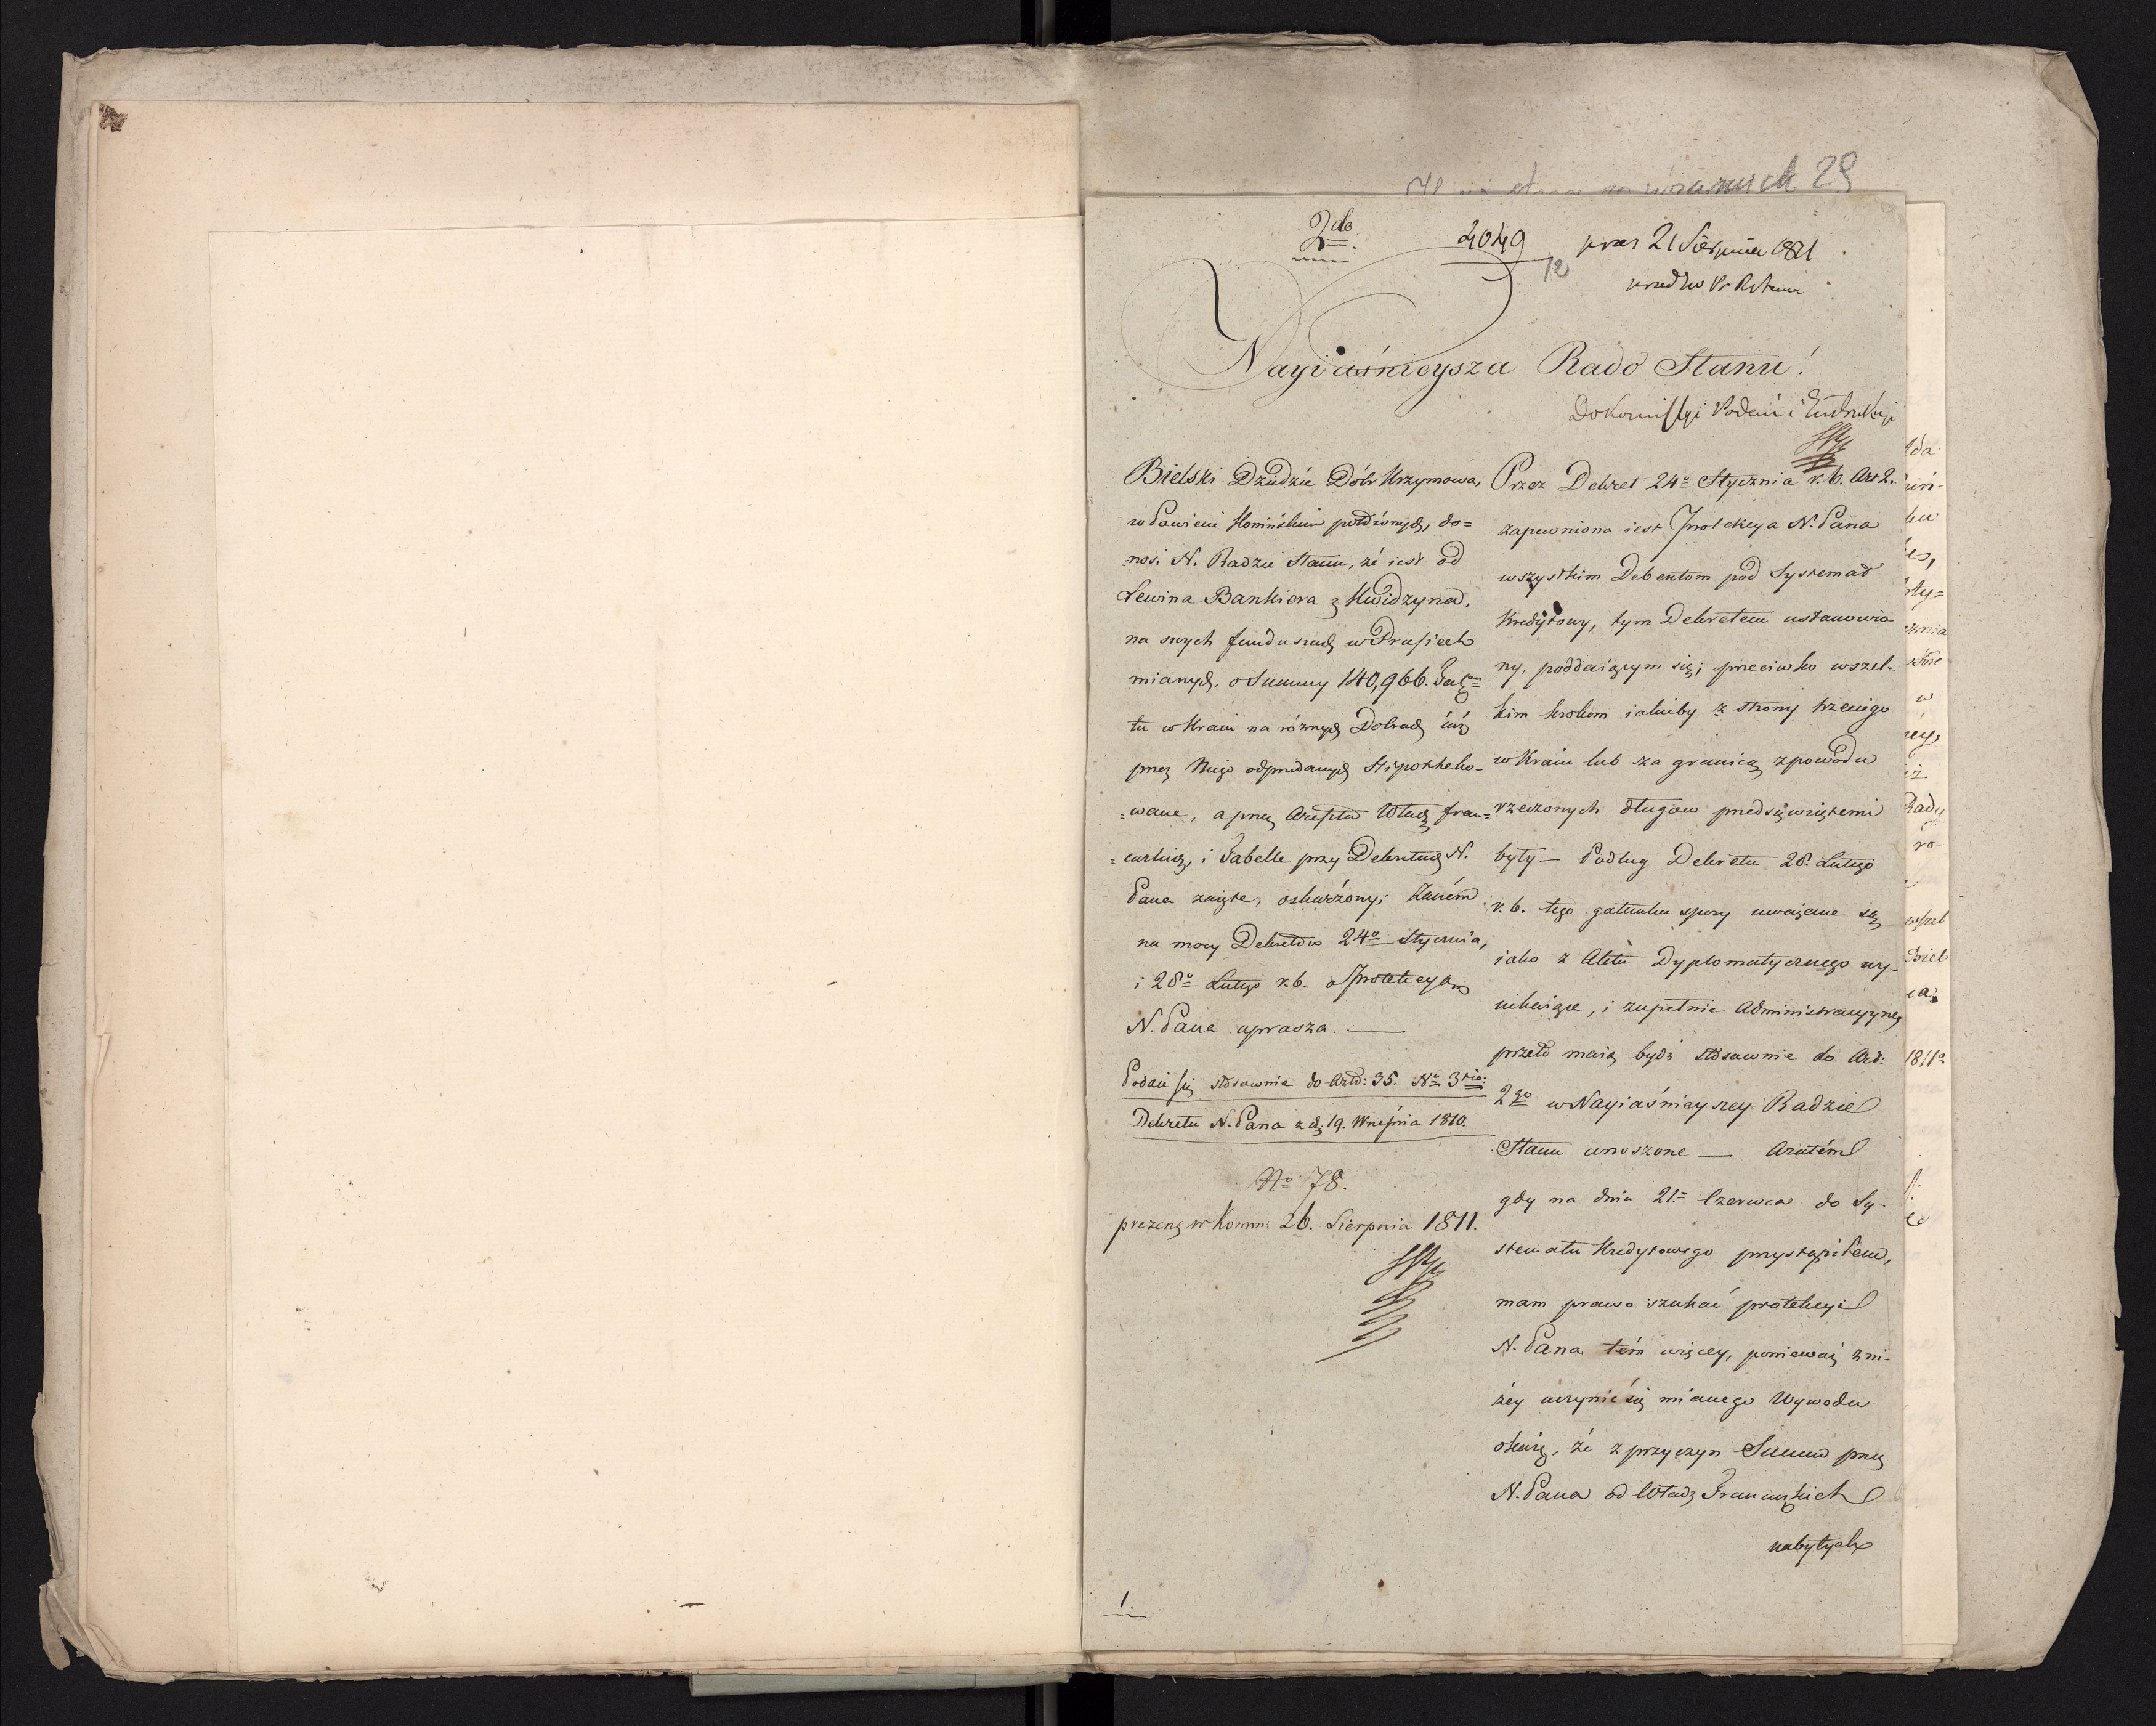 2do
4049
12
prez 21 Sierpnia 1811
Nayiaśnieysza Rado Stanu!
Do Kommissyi Podań i Instrukcyi
Bielski Dziedzic Dóbr Krzymowa,
w Powiecie Konińskim położonych, do=
=nosi N. Radzie Stanu, że iest od
Lewina Bankiera z Kwidzyna,
na swych funduszach w Prusiech
mianych, o Summy 140,966. Tal:
tu w Kraiu na różnych Dobrach iuż
przez Niego odprzedanych Hipotheko-
=wane, a przez Areszta Władz fran=
=cuskich, i Tabelle przy Dekretach N.
Pana zaięte, oskarżony; Zaczém
na mocy Dekretów 24o Stycznia,
i 28o Lutego r.b. o Protekcyą
N. Pana uprasza. —
Podaie się stósownie do Artu: 35. No 3tio:
Dekretu N. Pana z d. 19. Września 1810.
No 78.
prezent. w Komm: 26. Sierpnia 1811.
1
Przez Dekret 24o Stycznia r.b. Art 2.
zapewniona iest Protekcya N. Pana
wszystkim Debentom pod Systemat
Kredytowy, tym Dekretem ustanowio-
ny, poddaiącym się; przeciwko wszel-
kim krokom iakieby z strony trzeciego
w Kraiu lub za granicą z powodu
rzeczonych długów przedsięwziętemi
były — Podług Dekretu 28. Lutego
r.b. tego gatunku spory uważane są
iako z Aktu Dyplomatycznego wy-
nikaiące, i zupełnie Administracyyne,
przeto maią bydź stósownie do Art:
2go w Nayiaśnieyszey Radzie
Stanu wnoszone — Azatém
gdy na dniu 21o Czerwca do Sy-
stematu Kredytowego przystąpiłem,
mam prawo szukać protekcyi
N. Pana tém więcey, ponieważ z ni-
żey uczynić się mianego Wywodu
okażę, że z przyczyn Summ przez
N. Pana od Władz Francuzkich
nabytych